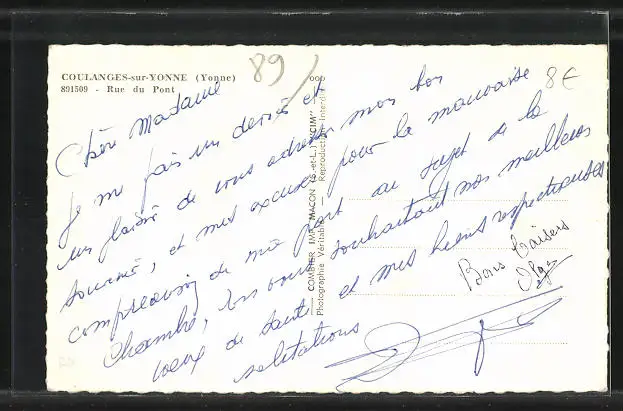 COULANGES-sur-YONNE (Yonne)
891509 - Rue du Pont
89/
8€
Chère Madame
Je me fais un devoir et
un plaisir de vous adresser mon bon
souvenir, et mes excuses pour la mauvaise
compréension de ma part au sujet de la
Chambre, en vous souhaitant nos meilleurs
voeux de santé et mes biens respectueuses
salutations
Bons baisers
Olga
COMBIER IMP. MACON (S.-et-L.) "CIM"
Photographie Véritable - Reproduction Interdite